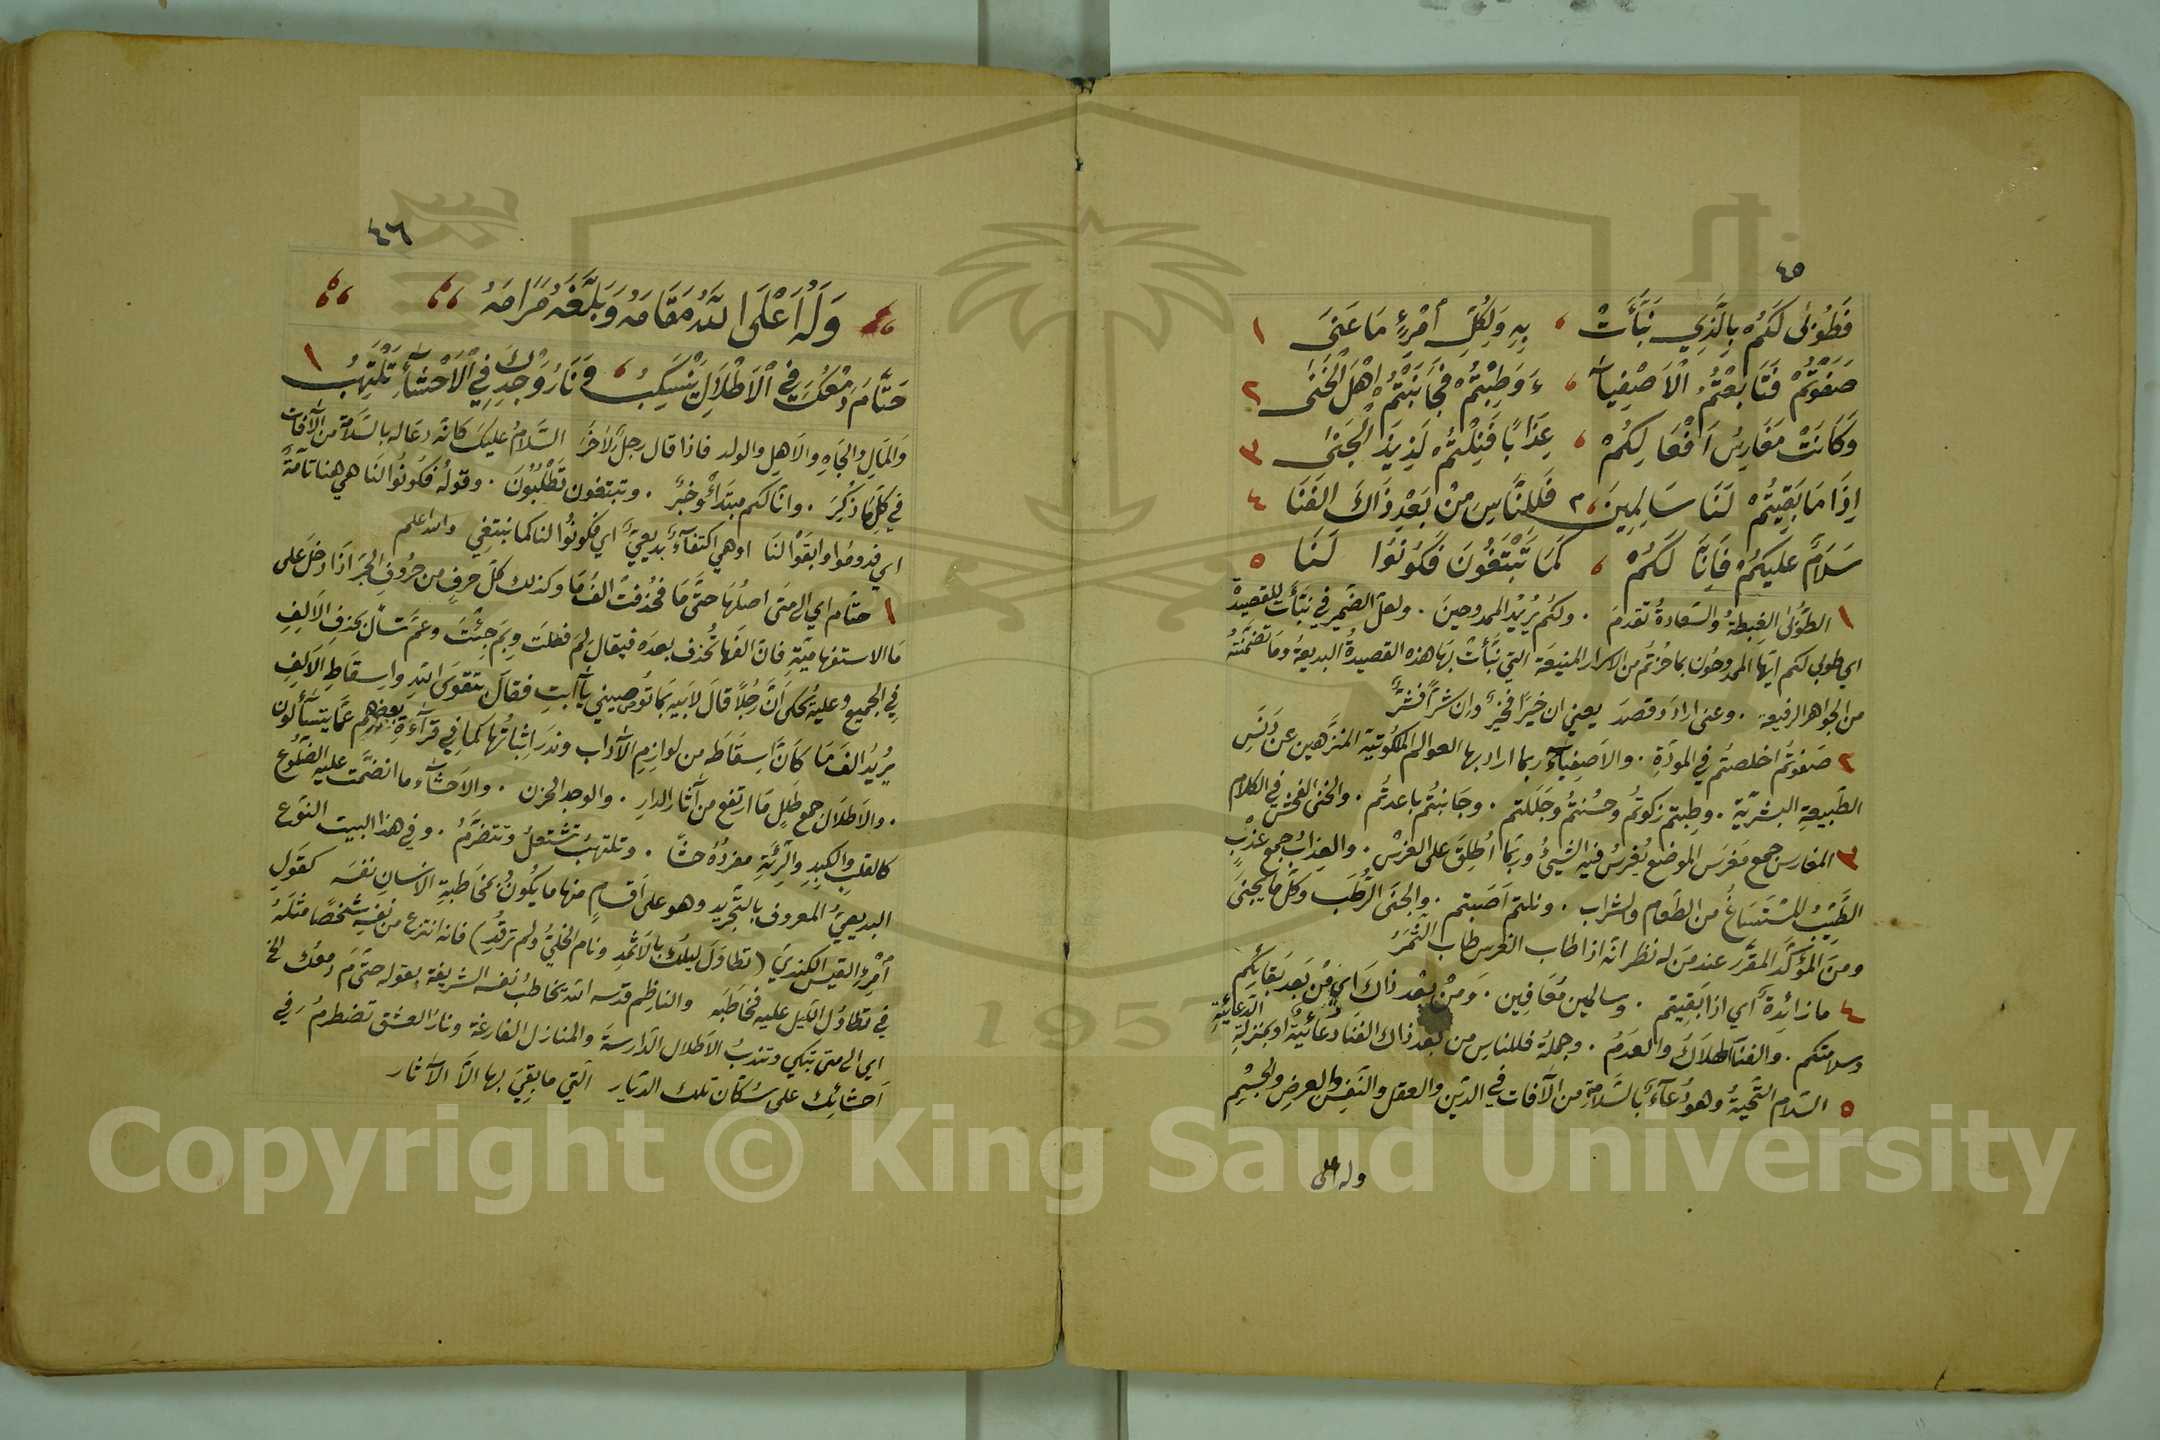 ٤٥
فَطُوْبٰى لَكُمْ بِالَّذِي نَبَّأَتْ ، بِهِ وَلِكُلِّ امْرِءٍ مَا عَنَى ١
صَفَوْتُمْ فَتَابَعْتُمُ الْاَصْفِيَاءَ ، وَطِبْتُمْ فَجَانَبْتُمْ اَهْلَ الْخَنَى ٢
وَكَانَتْ مَغَارِسُ اَفْعَالِكُمْ ، عِذَابًا فَنِلْتُمْ لَذِيذَ الْجَنَى ٣
اِذَا مَا بَقِيْتُمْ لَنَا سَالِمِينَ ، فَلِلنَّاسِ مِنْ بَعْدِ ذَاكَ الفَنَا ٤
سَلَامٌ عَلَيكُمْ فَاِنَّا لَكُمْ ، كَمَا تَبْتَغُونَ فَكُونُوا لَنَا ٥
١ الطُّوبٰى الغِبطةُ والسَّعادةُ تقدمَ . ولكُم يُريْدُ الممدوحينَ . ولعلّ الضميرَ في نبَّأتْ للقصيدة
اي طوبى لكم ايّها الممدوحُون بما حُزتُم من الاسرار المنيعَة التي نبَّأتْ بها هذه القصيدةُ البديعَةُ وما تضمَّنتهُ
من الجواهر الرفيعة . وعنى ارادَ وقصدَ يعني ان خيرًا فخيرٌ وان شرًّا فشرٌّ
٢ صَفَوتُم اخلصتُم في المودَّةِ . والاَصفِياءُ ربما اراد بها العوالم الملكُوتيةَ المنزَّهين عن دَنَسِ
الطَّبيعةِ البشريَّةِ . وطِبتم زكوتُم وحسُنتُم وجَلَلتم . وجَانبتُم باعدتُم . والخنى الفحش في الكلام
٣ المغارس جمع مَغرَس الموضع يُغرسُ فيه الشيئُ وربما اُطلِقَ على الغرسْ . والعِذابُ جمع عذبٍ
الطَّيّبُ المُستَسَاغُ من الطعام والشراب . ونلتم اَصَبتم . والجنَى الرُّطَب وكلّ ما يُجنىٰ
ومن المؤكَّد المقرَّر عند من له نظر انّه اذا طاب الغرس طاب الثمَرُ
٤ ما زائدةٌ اي اذا بَقيتم . وسالمين مُعَافِين . وَمن بعد ذاكَ اي مِن بَعد بَقائِكم
وسلامتكم . والفناءُ الهلاكُ والعدمُ . وجملةُ فللناس من بعد ذاك الفنا دُعائيّةٌ او بمنزلةِ الدعائيَّةِ
٥ السّلام التّحيةُ وهو دُعآءٌ بالسّلامةِ من الآفات في الدّين والعقل والنّفس والعرضِ والجسْم
وله اعلى
٤٦
وَلَهُ اَعْلَى اللهُ مَقَامَهُ وَبَلَّغَهُ مَرَامَهُ
حَتَّامَ دَمْعُكَ فِي الْاَطْلَالِ يَنْسَكِبُ ، وَنَارُ وَجْدِكَ فِي الْاَحْشَآءِ تَلْتَهِبُ ١
وَالمَالِ والجَاهِ والاَهلِ والولد فاذا قال رجلٌ لآخَرَ السَّلامُ عليكَ كانّه دعَا له بالسّلامة من الآفات
في كلِّ مَا ذُكِرَ . وانّا لكم مبتدأٌ وخبرٌ . وتبتغون تَطْلُبُونَ . وقولُه فكُونُوا لنَا هي هنا تامّةٌ
اي فدومُوا وابقَوْا لنَا اوهي اكتفآءٌ بديعيٌّ اي فكونُوا لنا كما نبتغي والله اعلم
١ حتّام اي الى متى اصلُهَا حتَّى مَا فحُذفت الفُ مَا وكذلك كلّ حرفٍ من حروفِ الجَرّ اذا دخلَ على
مَا الاستفهاميَّةِ فانّ الفَها تُحذف بعدَه فيقال لِمَ فعلتَ وبِمَ جِئْتَ وعمّ تسأل بحذفِ الاَلِفِ
في الجميع وعليهِ يُحكى انّ رجُلًا قالَ لابيه بمَا تُوصيني يا ابتِ فقال بتقوى اللهِ واِسقاطِ الاَلِفِ
يُريدُ الفَ مَا كاَنَّ اِسقَاطَه من لوازِمِ الآداب وندَرَ اثباتُها كما في قرآءَةِ بعضهم عَمَّا يتسآءلون
. والاَطلَالَ جمع طللٍ مَا ارتفع من آثار الدارِ . والوجد الحزن . والاَحشاء ما انضمَّت عليه الضّلوع
كالقلبِ والكبدِ والرِّئَةِ مفردُهُ حشًا . وتلتهبُ تشتعلُ وتتضرَّمُ . وفي هذا البيت النوَع
البديعيّ المعروف بالتّجريدِ وهو على اَقسامٍ منها ما يكُونُ بمخاطبةِ الانسانِ نفسَه كقولِ
اُمرِءِ القيس الكنديّ (تطاولَ ليلُكَ بالاَثمُدِ ونام الخليّ ولم ترقُدِ) فانه انتزع من نفسهِ شخصًا مثلَهُ
في تطاوُلِ الليل عليه فخاطَبَه والناظم قدسه الله يخاطبُ نفسَه الشريفة بقوله حتّامَ دمعُك الخ
اي الى متى تبكي وتندبُ الاَطلالَ الدّارسةَ والمنازل الفارغة ونار العشق تضطرمُ في
اَحشائِك على سُكّان تلك الدّيار التي ما بقيَ بها الاّ الآثار
Copyright © King Saud University
1957